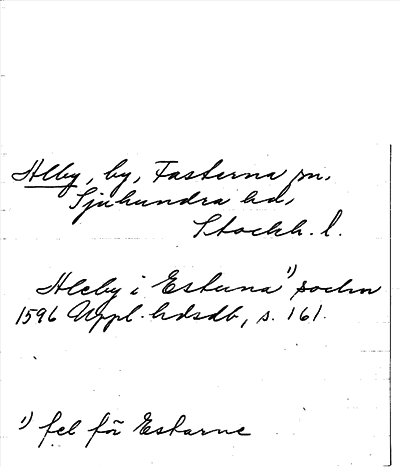 Alby, by, Fasterna sn,
Sjuhundra hd,
Stockh. l.
Aleby i Estuna¹⁾ sochn
1596 Uppl. hdsdb, s. 161.
¹⁾ fel för Estarne